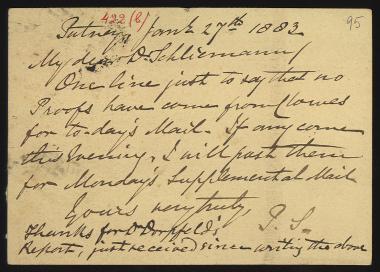 422 (b)
95
Putney, Jany. 27th 1883
My dear Dr. Schliemann,
One line just to say that no
Proofs have come from Clowes
for to-day's Mail. If any come
this Evening, I will post them
for Monday's Supplemental Mail
Yours very truly,
P. S.
Thanks for Dr. Dorpfeld's
Report, just received since writing the above